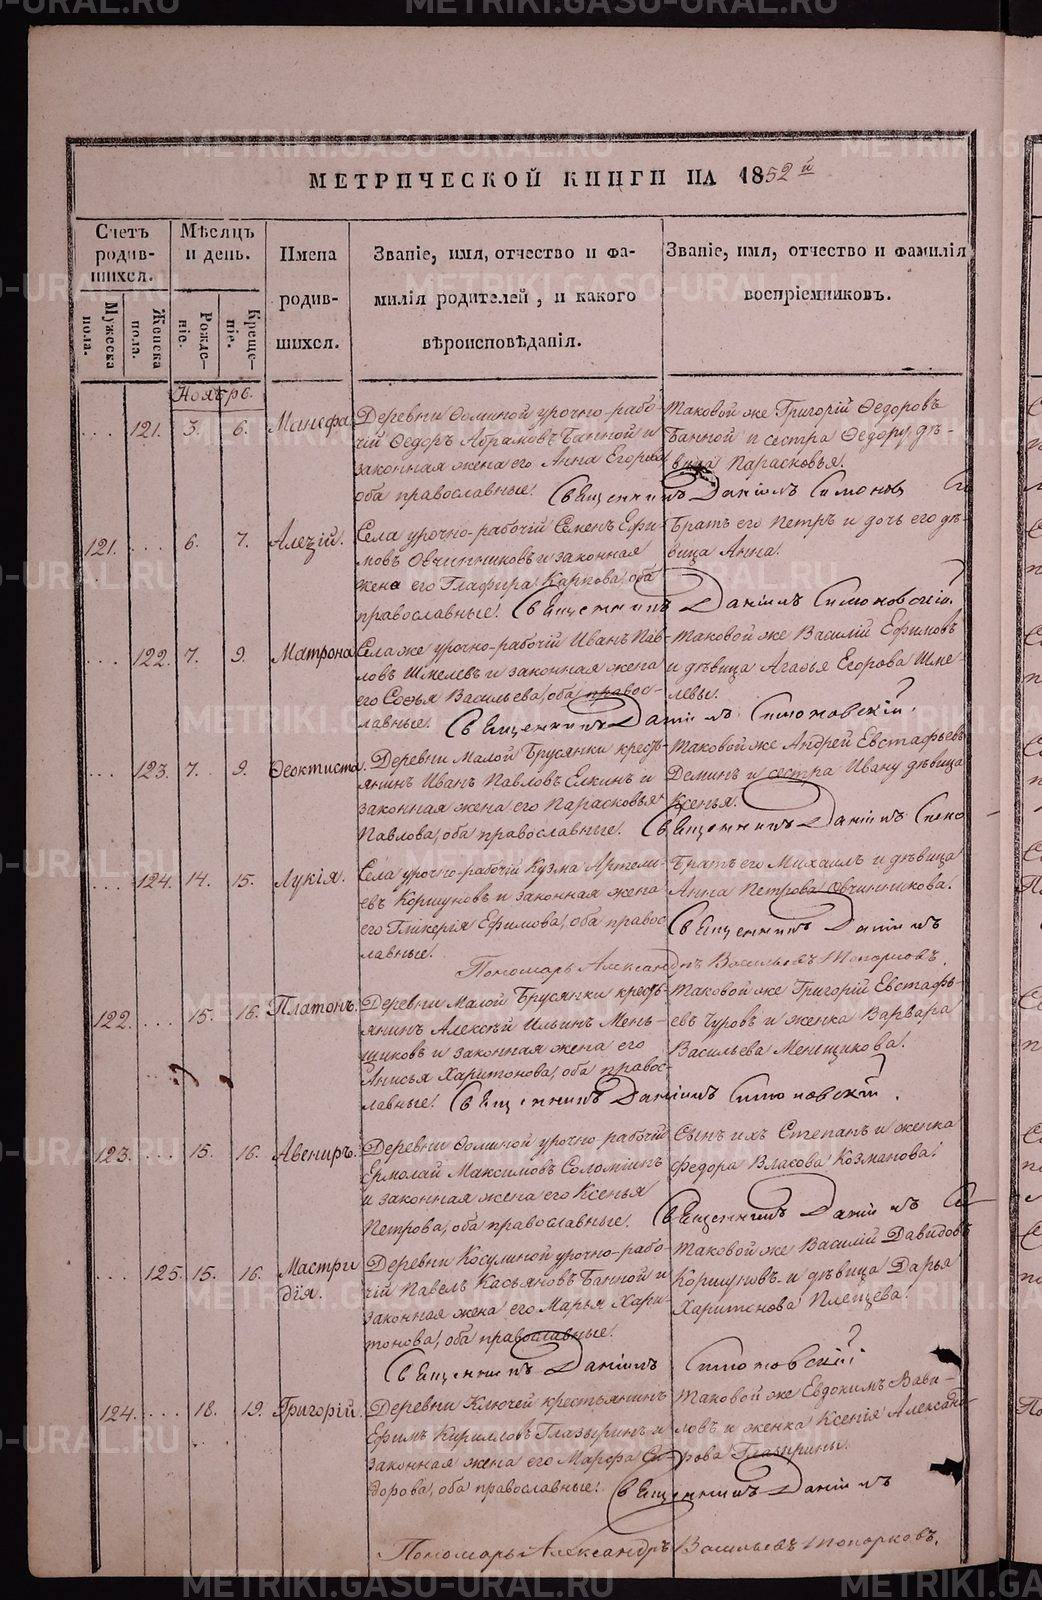 МЕТРИЧЕСКОЙ КНИГИ НА 1852й
Счетъ родив-шихся.
Мужеска пола.
Женска пола.
Мѣсяцъ и день.
Рожде-ніе.
Креще-ніе.
Имена родив-шихся.
Званіе, имя, отчество и фа-
милія родителей, и какого
вѣроисповѣданія.
Званіе, имя, отчество и фамилія
воспріемниковъ.
Ноябрь.
121. 3. 6. Манефа
Деревни Ѳоминой урочно-рабо-
чій Ѳедоръ Абрамовъ Банной и
законная жена его Анна Егорова
оба православные.
Таковой же Григорій Ѳедоровъ
Банной и сестра Ѳедору дѣ-
вица Парасковья.
Священникъ Даніилъ Симонов
121. 6. 7. Алезій.
Села урочно-рабочій Семенъ Ефи-
мовъ Овчинниковъ и законная
жена его Глафира Карпова, оба
православные.
Братъ его Петръ и дочь его дѣ-
вица Анна.
Священникъ Даніилъ Симоновскій.
122. 7. 9. Матрона
Села же урочно-рабочій Иванъ Пав-
ловъ Шмелевъ и законная жена
его Софья Васильева, оба правос-
лавные.
Таковой же Василій Ефимовъ
и дѣвица Агафья Егорова Шме-
левы.
Священникъ Даніилъ Симоновскій.
123. 7. 9. Ѳеоктиста.
Деревни Малой Брусянки крест-
янинъ Иванъ Павловъ Елкинъ и
законная жена его Парасковья
Павлова, оба православные.
Таковой же Андрей Евстафьевъ
Деминъ и сестра Ивану дѣвица
Ксенья.
Священникъ Даніилъ Симо
124. 14. 15. Лукія.
Села урочно-рабочій Кузма Артеми-
евъ Коршуновъ и законная жена
его Гликерія Ефимова, оба правос
лавные.
Братъ его Михаилъ и дѣвица
Анна Петрова Овчинникова.
Священникъ Даніилъ
Пономарь Александръ Васильевъ Топорковъ.
122. 15. 16. Платонъ.
Деревни Малой Брусянки крест-
янинъ Алексѣй Ильинъ Мень-
щиковъ и законная жена его
Анисья Харитонова, оба правос-
лавные.
Таковой же Григорій Евстафь-
евъ Чуровъ и женка Варвара
Васильева Менщикова.
Священникъ Даніилъ Симоновскій.
123. 15. 16. Авениръ.
Деревни Ѳоминой урочно-рабочій
Ермолай Максимовъ Соломеинъ
и законная жена его Ксенья
Петрова, оба православные.
Сынъ ихъ Степанъ и женка
Федора Власова Козманова.
Священникъ Даніилъ Си
125. 15. 16. Мастри
дія.
Деревни Косулиной урочно-рабо-
чій Павелъ Касьяновъ Банной и
законная жена его Марья Хари-
тонова, оба православные.
Таковой же Василій Давидовъ
Коршуновъ и дѣвица Дарья
Харитонова Плепцева.
Священникъ Даніилъ Симоновскій
124. 18. 19. Григорій.
Деревни Ключей крестьянинъ
Ефимъ Кирилловъ Глазыринъ и
законная жена его Марфа Си-
дорова, оба православные.
Таковой же Евдокимъ Вави-
ловъ и женка Ксенія Александ-
рова Глазырины.
Священникъ Даніилъ
Пономарь Александръ Васильевъ Топорковъ.
METRIKI.GASO-URAL.RU